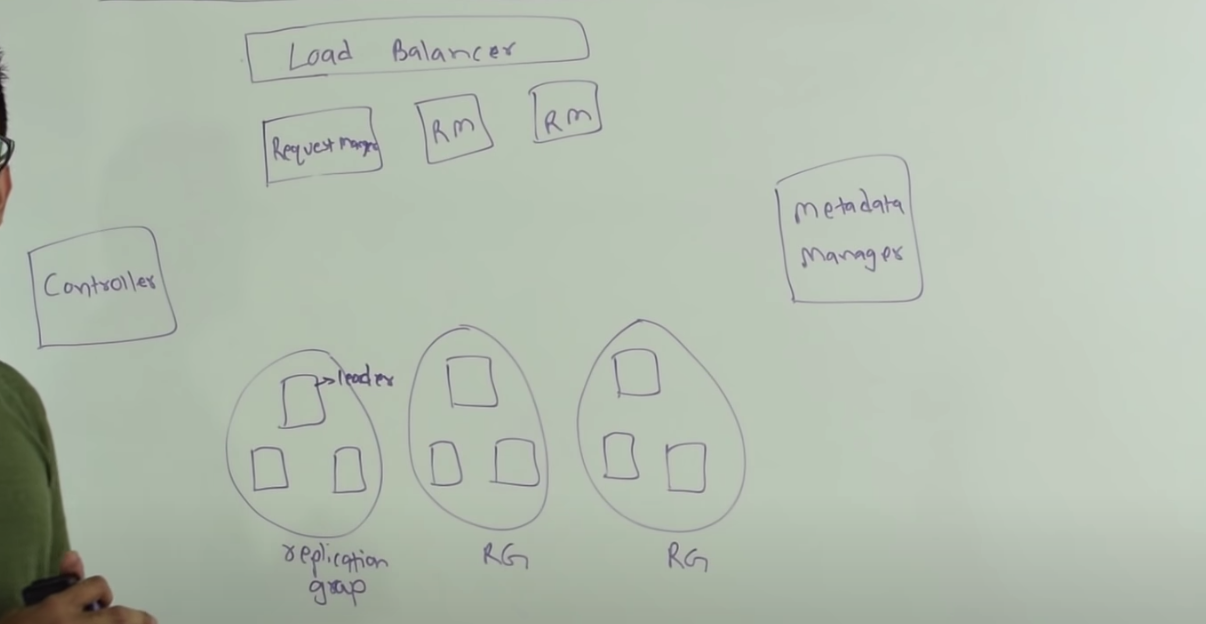 Load Balancer
Request Manager
RM
RM
Metadata
Manager
Controller
leader
replication
group
RG
RG